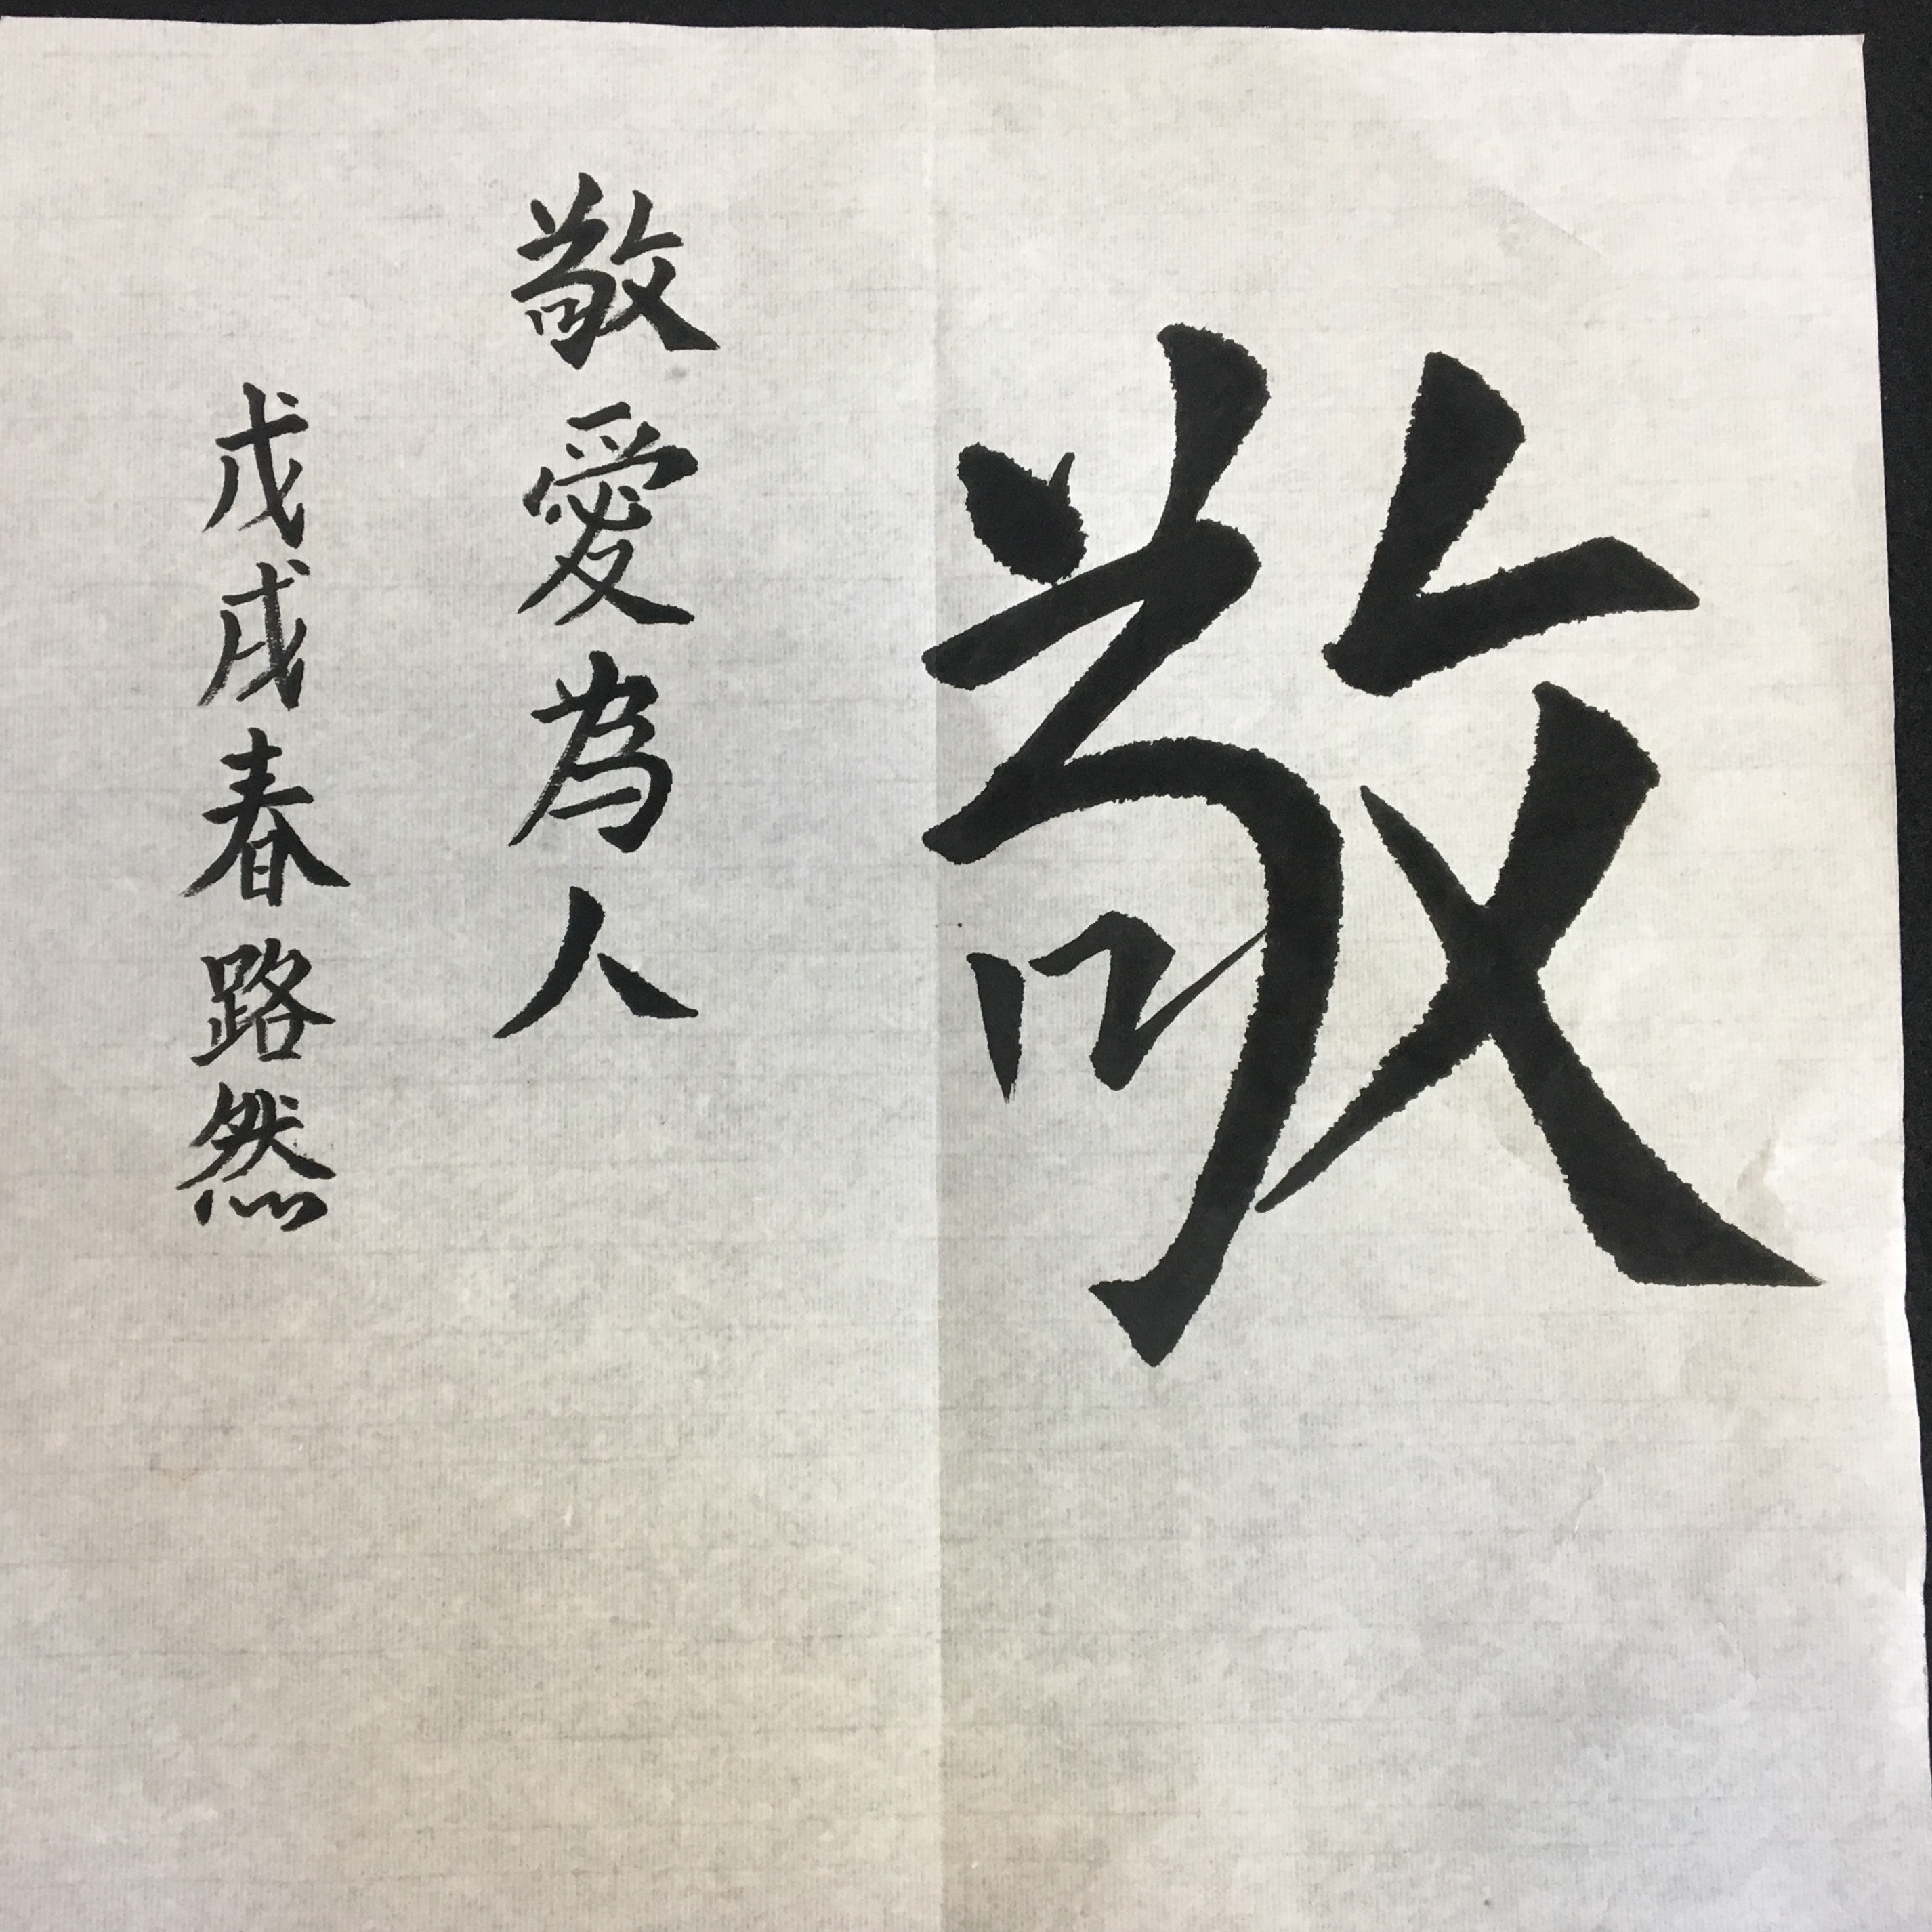 敬
敬愛為人
戊戌春路然